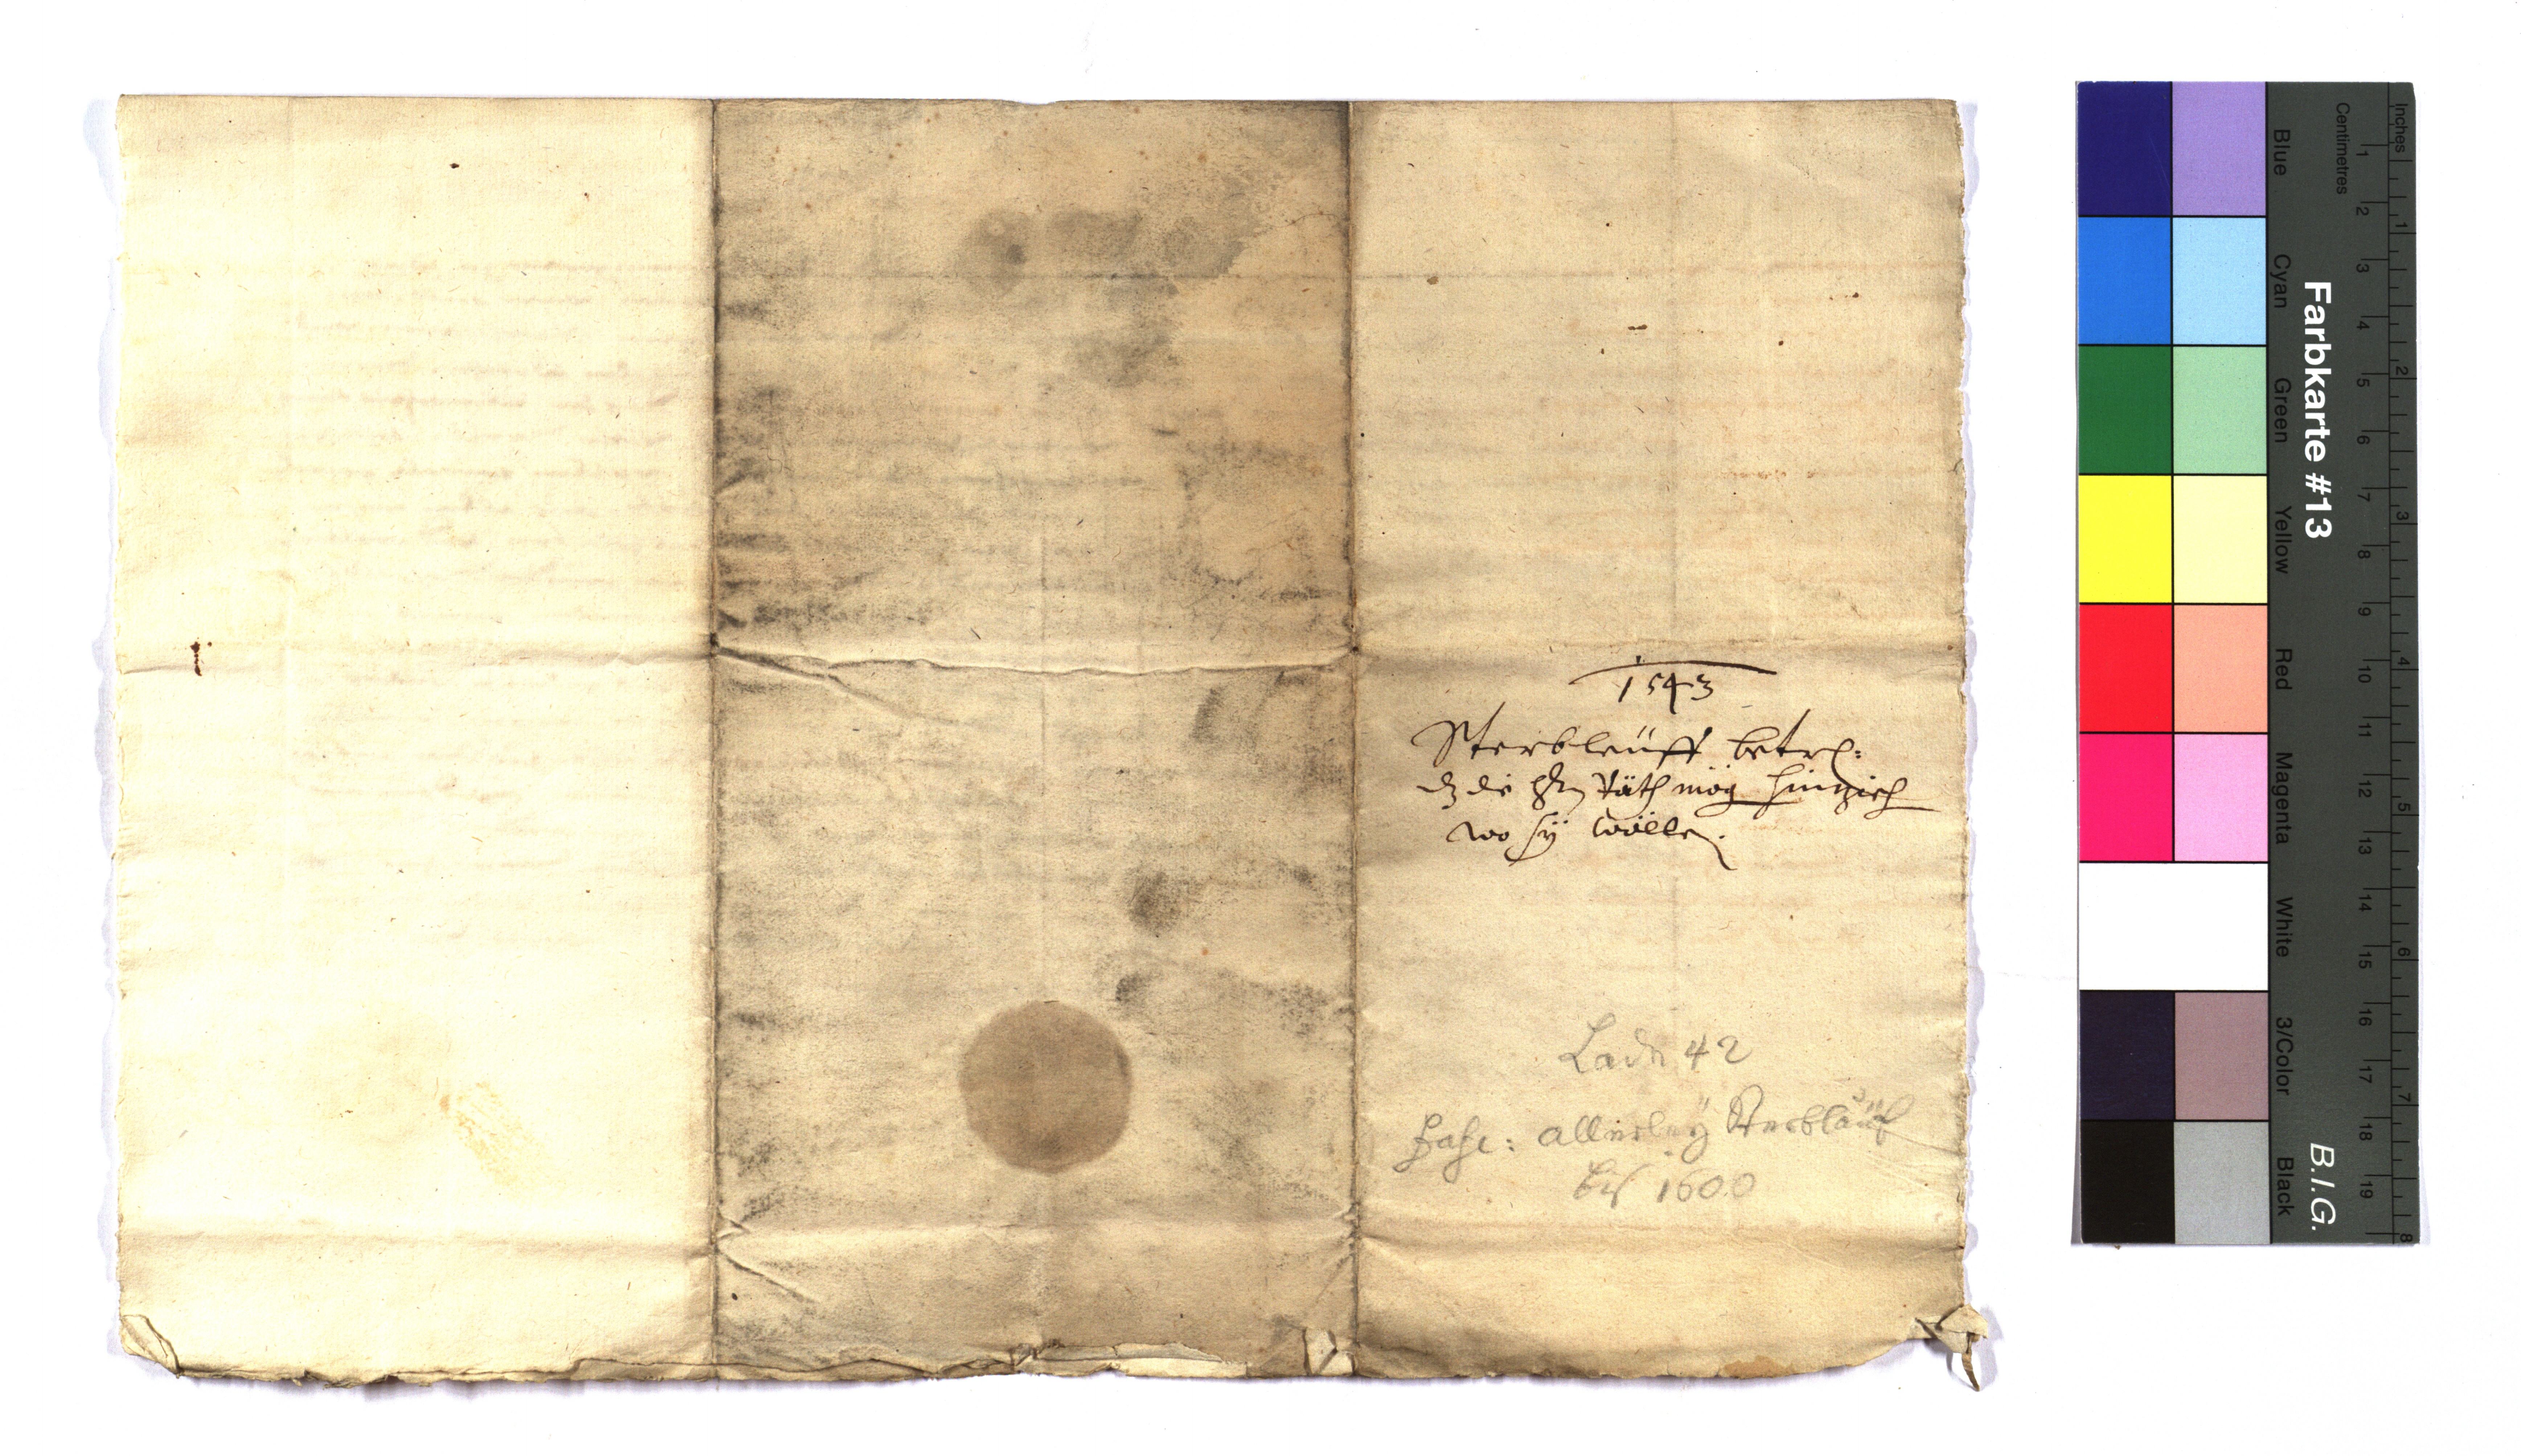 1543
Sterbleüff betr:
dz die hrn Räth mög hinzieh
wo sÿ wölle.
Lade 42
Fasc: allerleÿ Sterbläuf
bis 1600
Farbkarte #13
B.I.G.
Blue
Cyan
Green
Yellow
Red
Magenta
White
3/Color
Black
Centimetres
1 2 3 4 5 6 7 8 9 10 11 12 13 14 15 16 17 18 19
Inches
1 2 3 4 5 6 7 8